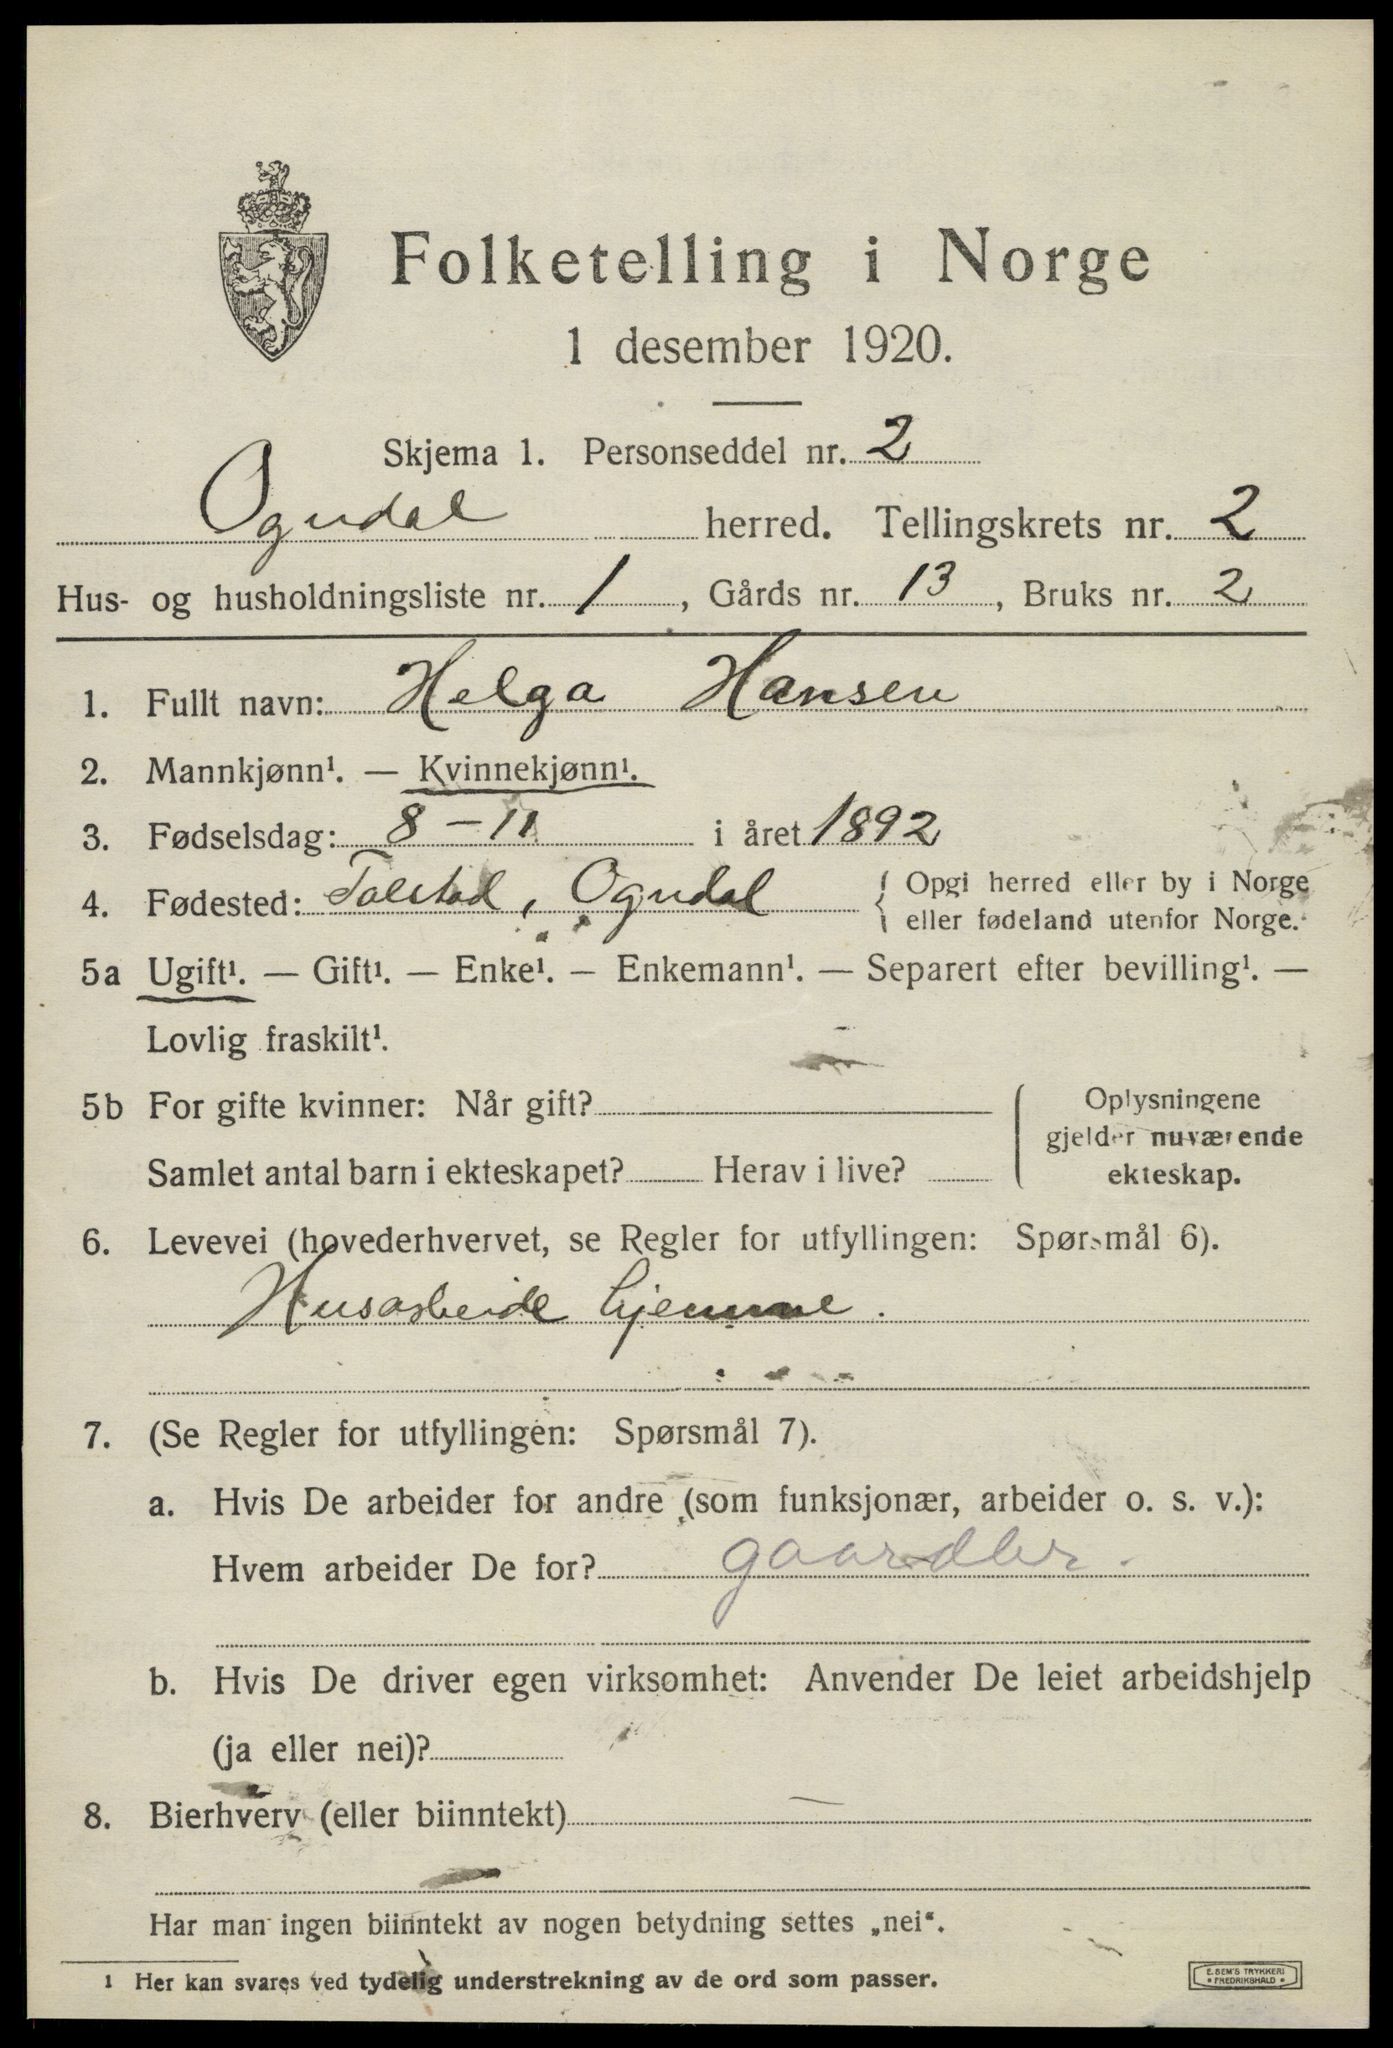 Folketelling i Norge
1 desember 1920.
Skjema 1. Personseddel nr. 2
Ogndal herred. Tellingskrets nr. 2
Hus- og husholdningsliste nr. 1, Gårds nr. 13, Bruks nr. 2
1. Fullt navn: Helga Hansen
2. Mannkjønn¹. — Kvinnekjønn¹.
3. Fødselsdag: 8 – 11 i året 1892
4. Fødested: Ogndal { Opgi herred eller by i Norge
eller fødeland utenfor Norge.
5a Ugift¹. — Gift¹. — Enke¹. — Enkemann¹. — Separert efter bevilling¹. —
Lovlig fraskilt¹.
5b For gifte kvinner: Når gift? Oplysningene
gjelder nuværende
Samlet antal barn i ekteskapet? Herav i live? ekteskap.
6. Levevei (hovederhvervet, se Regler for utfyllingen: Spørsmål 6).
Husarbeide hjemme.
7. (Se Regler for utfyllingen: Spørsmål 7).
a. Hvis De arbeider for andre (som funksjonær, arbeider o. s. v.):
Hvem arbeider De for? gaardbr.
b. Hvis De driver egen virksomhet: Anvender De leiet arbeidshjelp
(ja eller nei)?
8. Bierhverv (eller biinntekt) —
Har man ingen biinntekt av nogen betydning settes „nei“.
1 Her kan svares ved tydelig understrekning av de ord som passer.
E. SEM'S TRYKKERI
• FREDRIKSHALD •